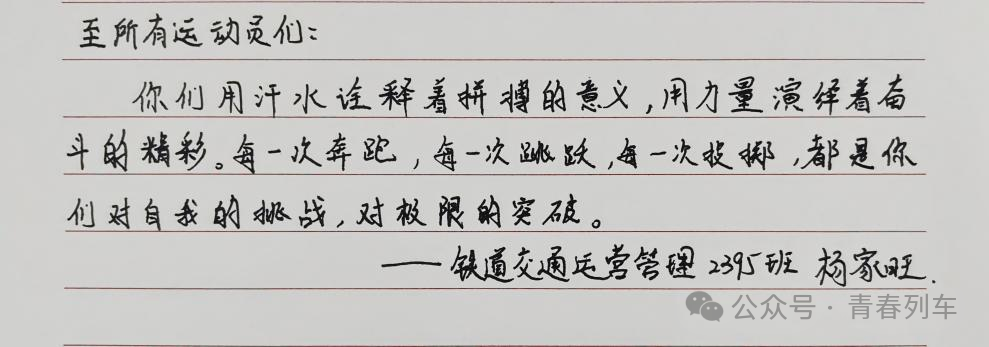 至所有运动员们：
你们用汗水诠释着拼搏的意义，用力量演绎着奋
斗的精彩。每一次奔跑，每一次跳跃，每一次投掷，都是你
们对自我的挑战，对极限的突破。
——铁道交通运营管理2395班 杨家旺.
公众号·青春列车